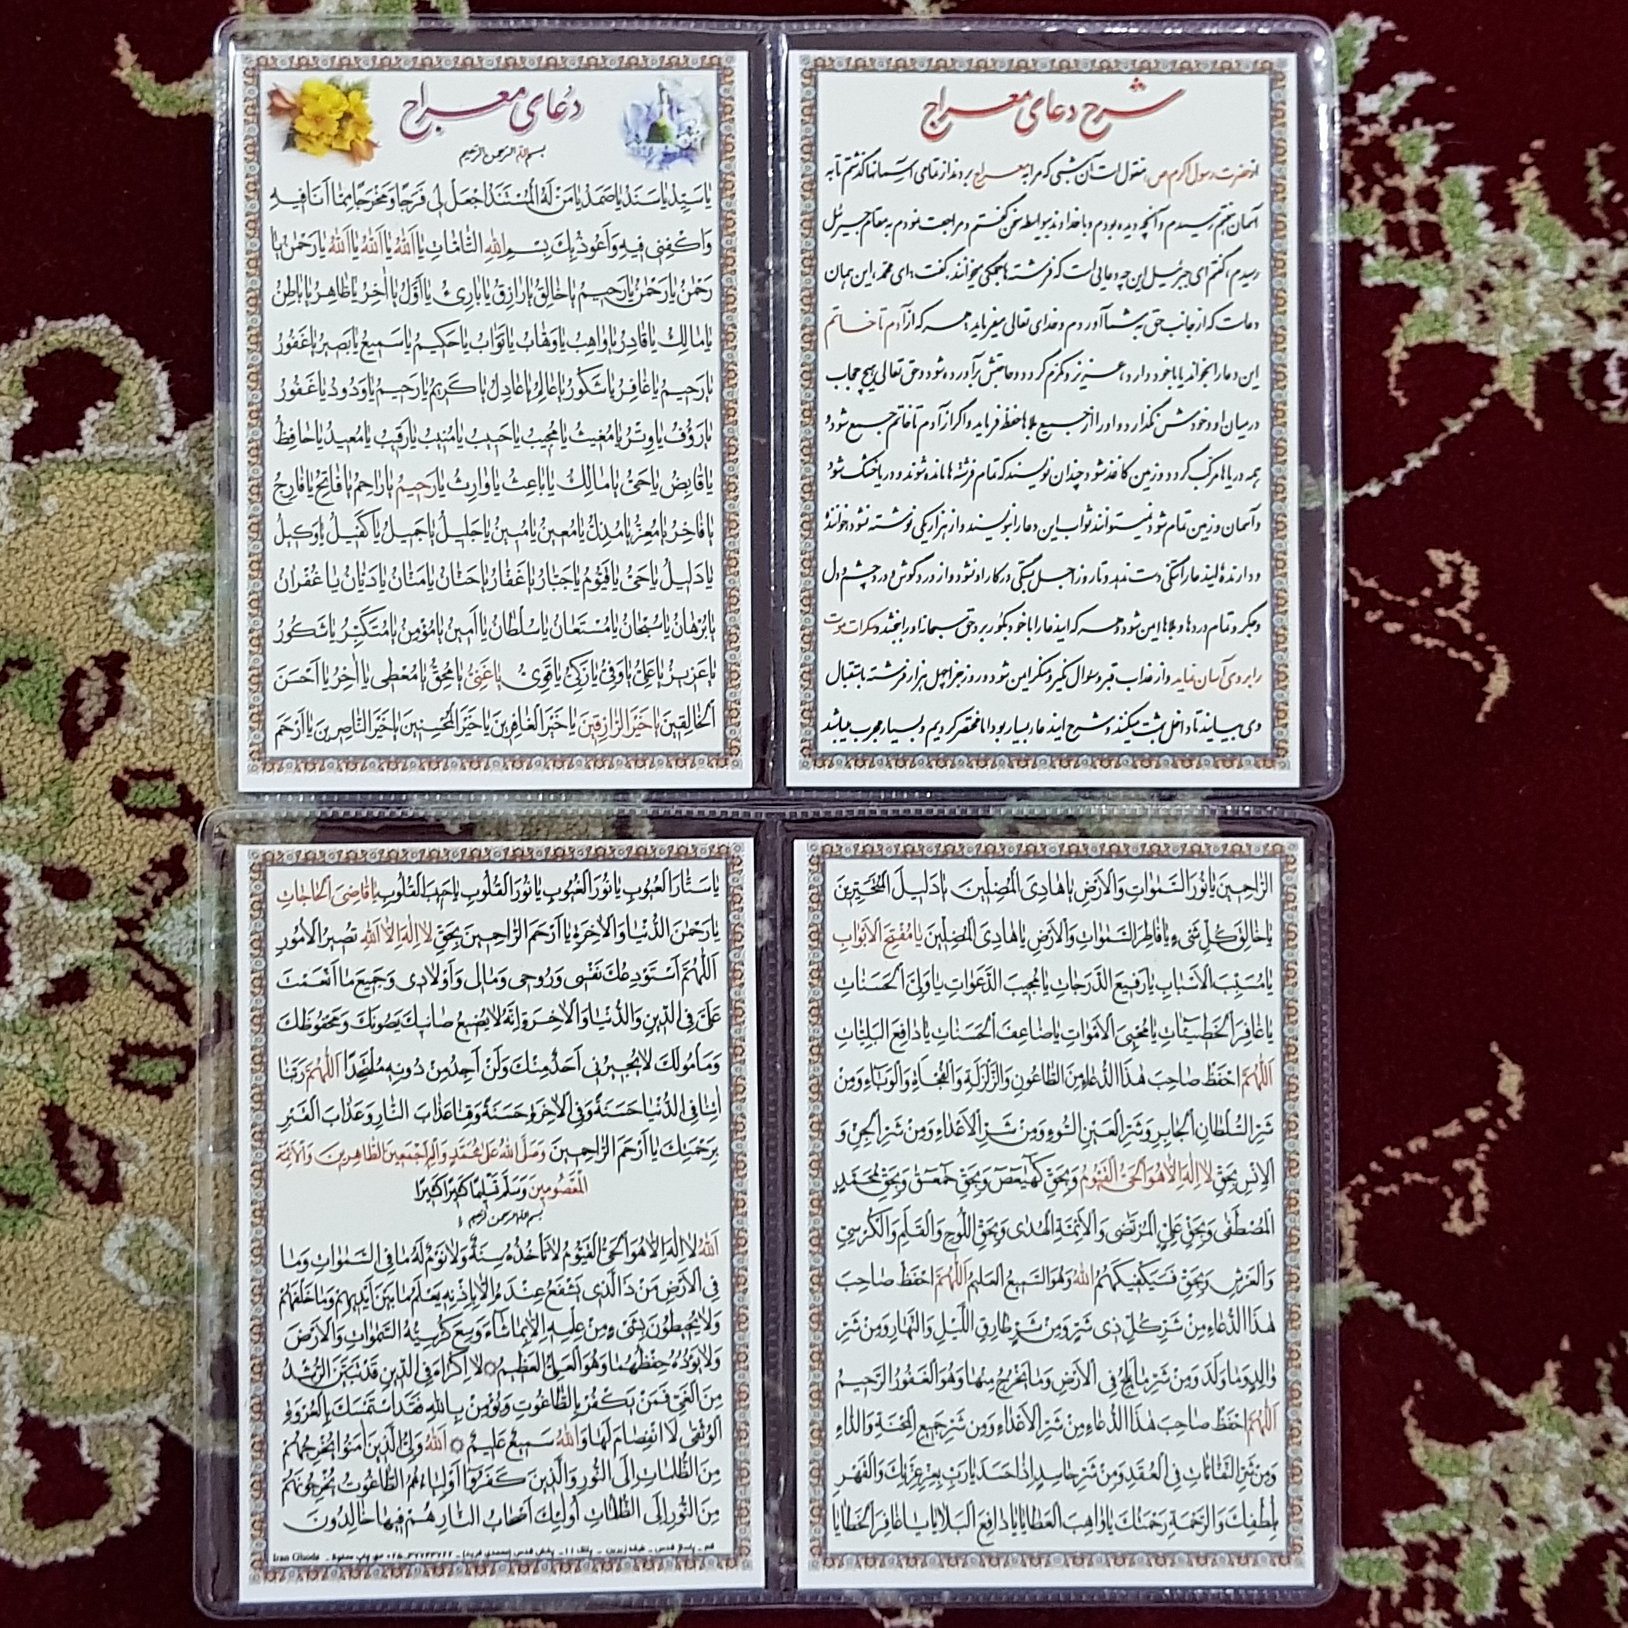 شرح دعای معراج
از حضرت رسول اکرم ص منقول است آن شبی که مرا به معراج بردند از تمامی آسمانها گذشتم تا به
آسمان هفتم رسیدم و آنچه دیده بودم و با خداوند بیواسطه سخن گفتم و مراجعت نمودم به مقام جبرئیل
رسیدم، گفتم ای جبرئیل این چه دعایی است که فرشته ها همگی میخوانند. گفت: ای محمد، این همان
دعاست که از جانب حق به شما آوردم و خدای تعالی میفرماید: هر که از آدم تا خاتم
این دعا را بخواند یا با خود دارد، عزیز و مکرم گردد و حاجتش برآورده شود و حق تعالی هیچ حجاب
درمیان او و خودش نگذارد و او را از جمیع بلاها حفظ فرماید و اگر از آدم تا خاتم جمع شود و
همه دریاها مرکب گردد و زمین کاغذ شود چندان نویسند که تمام فرشته ها مانده شوند و دریا خشک شود
و آسمان و زمین تمام شود نمیتوانند ثواب این دعا را بنویسند و از هزار یکی نوشته نشود خواننده
و دارنده این دعا را تنگی دست ندهد و تا روز اجل بستگی در کار او نشود و از درد گوش و درد چشم و دل
و جگر و تمام دردها و بلاها ایمن شود و هر که این دعا را با خود بگور برد حق سبحانه او را ببخشد و سکرات موت
را بر وی آسان نماید و از عذاب قبر و سئوال نکیر و منکر ایمن شود و روز جزا چهل هزار فرشته باستقبال
وی میآیند تا داخل بهشت میکنند و شرح این دعا بسیار بود اما مختصر کردیم و بسیار مجرب میباشد
دُعای معراج
بسم الله الرحمن الرحیم
یا سَیِّدُ یا سَنَدُ یا صَمَدُ یا مَنْ لَهُ الْمُسْتَنَدُ اجْعَلْ لی فَرَجًا وَ مَخْرَجًا مِمّا اَنَا فیهِ
وَ اکْفِنی فیهِ وَ اَعُوذُ بِکَ بِسْمِ اللهِ التّامّاتِ یا اَللهُ یا اَللهُ یا اَللهُ یا رَحْمٰنُ یا
رَحْمٰنُ یا رَحْمٰنُ یا رَحیمُ یا خالِقُ یا رازِقُ یا بارِئُ یا اَوَّلُ یا اٰخِرُ یا ظاهِرُ یا باطِنُ
یا مالِکُ یا قادِرُ یا واهِبُ یا وَهّابُ یا تَوّابُ یا حَکیمُ یا سَمیعُ یا بَصیرُ یا غَفُورُ
یا رَحیمُ یا غافِرُ یا شَکُورُ یا عالِمُ یا عادِلُ یا کَریمُ یا رَحیمُ یا وَدُودُ یا غَفُورُ
یا رَؤُفُ یا وِتْرُ یا مُغیثُ یا مُجیبُ یا حَبیبُ یا مُنیبُ یا رَقیبُ یا مُعیدُ یا حافِظُ
یا قابِضُ یا حَیُّ یا مالِکُ یا باعِثُ یا وارِثُ یا رَحیمُ یا راحِمُ یا فاتِحُ یا فارِجُ
یا فاخِرُ یا مُعِزُّ یا مُذِلُّ یا مُعینُ یا مُبینُ یا جَلیلُ یا جَمیلُ یا کَفیلُ یا وَکیلُ
یا دَلیلُ یا حَیُّ یا قَیُّومُ یا جَبّارُ یا غَفّارُ یا حَنّانُ یا مَنّانُ یا دَیّانُ یا غُفْرانُ
یا بُرْهانُ یا سُبْحانُ یا مُسْتَعانُ یا سُلْطانُ یا اَمینُ یا مُؤْمِنُ یا مُتَکَبِّرُ یا شَکُورُ
یا عَزیزُ یا عَلِیُّ یا وَفِیُّ یا زَکِیُّ یا قَوِیُّ یا غَنِیُّ یا مُحِقُّ یا مُعْطی یا اٰخِرُ یا اَحْسَنَ
الْخالِقینَ یا خَیْرَ الرّازِقینَ یا خَیْرَ الْغافِرینَ یا خَیْرَ الْمُحْسِنینَ یا خَیْرَ النّاصِرینَ یا اَرْحَمَ
الرّاحِمینَ یا نُورَ السَّمٰواتِ وَ الْاَرْضِ یا هادِیَ الْمُضِلّینَ یا دَلیلَ الْمُتَحَیِّرینَ
یا خالِقَ کُلِّ شَیْءٍ یا فاطِرَ السَّمٰواتِ وَ الْاَرْضِ یا هادِیَ الْمُضِلّینَ یا مُفَتِّحَ الْاَبْوابِ
یا مُسَبِّبَ الْاَسْبابِ یا رَفیعَ الدَّرَجاتِ یا مُجیبَ الدَّعَواتِ یا وَلِیَّ الْحَسَناتِ
یا غافِرَ الْخَطیئاتِ یا مُحْیِیَ الْاَمْواتِ یا ضاعِفَ الْحَسَناتِ یا دافِعَ الْبَلِیّاتِ
اَللّٰهُمَّ احْفَظْ صاحِبَ هٰذَا الدُّعاءِ مِنَ الطّاعُونِ وَ الزَّلْزَلَةِ وَ الْفُجْاَةِ وَ الْوَباءِ وَ مِنْ
شَرِّ السُّلْطانِ الْجابِرِ وَ شَرِّ الْعَیْنِ السُّوءِ وَ مِنْ شَرِّ الْاَعْداءِ وَ مِنْ شَرِّ الْجِنِّ وَ
الْاِنْسِ بِحَقِّ لا اِلٰهَ اِلّا هُوَ الْحَیُّ الْقَیُّومُ وَ بِحَقِّ کٓهٰیٰعٓصٓ وَ بِحَقِّ حٰمٓعٓسٓقٓ وَ بِحَقِّ مُحَمَّدٍ
الْمُصْطَفٰی وَ بِحَقِّ عَلِیٍّ الْمُرْتَضٰی وَ الْاَئِمَّةِ الْهُدٰی وَ بِحَقِّ اللَّوْحِ وَ الْقَلَمِ وَ الْکُرْسِیِّ
وَ الْعَرْشِ وَ بِحَقِّ فَسَیَکْفیکَهُمُ اللهُ وَ هُوَ السَّمیعُ الْعَلیمُ اَللّٰهُمَّ احْفَظْ صاحِبَ
هٰذَا الدُّعاءِ مِنْ شَرِّ کُلِّ ذی شَرٍّ وَ مِنْ شَرِّ طارِقِ اللَّیْلِ وَ النَّهارِ وَ مِنْ شَرِّ
والِدٍ وَ ما وَلَدَ وَ مِنْ شَرِّ ما یَلِجُ فِی الْاَرْضِ وَ ما یَخْرُجُ مِنْها وَ هُوَ الْغَفُورُ الرَّحیمُ
اَللّٰهُمَّ احْفَظْ صاحِبَ هٰذَا الدُّعاءِ مِنْ شَرِّ الْاَعْداءِ وَ مِنْ شَرِّ جَمیعِ الْمِحْنَةِ وَ الدّاءِ
وَ مِنْ شَرِّ النَّفّاثاتِ فِی الْعُقَدِ وَ مِنْ شَرِّ حاسِدٍ اِذا حَسَدَ یا رَبِّ بِعِزِّ عِزَّتِکَ وَ الْقَهْرِ
بِلُطْفِکَ وَ الرَّحْمَةِ رَحْمَتِکَ یا واهِبَ الْعَطایا یا دافِعَ الْبَلایا یا غافِرَ الْخَطایا
یا سَتّارَ الْعُیُوبِ یا نُورَ الْغُیُوبِ یا نُورَ الْقُلُوبِ یا حَبیبَ الْقُلُوبِ یا قاضِیَ الْحاجاتِ
یا رَحْمٰنَ الدُّنْیا وَ الْاٰخِرَةِ یا اَرْحَمَ الرّاحِمینَ بِحَقِّ لا اِلٰهَ اِلَّا اللهُ تَصیرُ الْاُمُورُ
اَللّٰهُمَّ اَسْتَوْدِعُکَ نَفْسی وَ رُوحی وَ مالی وَ اَوْلادی وَ جَمیعَ ما اَنْعَمْتَ
عَلَیَّ فِی الدّینِ وَ الدُّنْیا وَ الْاٰخِرَةِ اِنَّهُ لا یُضیعُ صائِبُکَ یَصُونُکَ وَ مَحْفُوظُکَ
وَ مَاْمُولُکَ لا یُجیرُنی اَحَدٌ مِنْکَ وَ لَنْ اَجِدَ مِنْ دُونِهِ مُلْتَحَدًا اَللّٰهُمَّ رَبَّنا
اٰتِنا فِی الدُّنْیا حَسَنَةً وَ فِی الْاٰخِرَةِ حَسَنَةً وَ قِنا عَذابَ النّارِ وَ عَذابَ الْقَبْرِ
بِرَحْمَتِکَ یا اَرْحَمَ الرّاحِمینَ وَ صَلَّی اللهُ عَلٰی مُحَمَّدٍ وَ اٰلِهِ اَجْمَعینَ الطّاهِرینَ وَ الْاَئِمَّةِ
الْمَعْصُومینَ وَ سَلَّمَ تَسْلیمًا کَثیرًا کَثیرًا
بسم الله الرحمن الرحیم
اَللهُ لا اِلٰهَ اِلّا هُوَ الْحَیُّ الْقَیُّومُ لا تَاْخُذُهُ سِنَةٌ وَ لا نَوْمٌ لَهُ ما فِی السَّمٰواتِ وَ ما
فِی الْاَرْضِ مَنْ ذَا الَّذی یَشْفَعُ عِنْدَهُ اِلّا بِاِذْنِهِ یَعْلَمُ ما بَیْنَ اَیْدیهِمْ وَ ما خَلْفَهُمْ
وَ لا یُحیطُونَ بِشَیْءٍ مِنْ عِلْمِهِ اِلّا بِما شاءَ وَسِعَ کُرْسِیُّهُ السَّمٰواتِ وَ الْاَرْضَ
وَ لا یَؤُدُهُ حِفْظُهُما وَ هُوَ الْعَلِیُّ الْعَظیمُ لا اِکْراهَ فِی الدّینِ قَدْ تَبَیَّنَ الرُّشْدُ
مِنَ الْغَیِّ فَمَنْ یَکْفُرْ بِالطّاغُوتِ وَ یُؤْمِنْ بِاللهِ فَقَدِ اسْتَمْسَکَ بِالْعُرْوَةِ
الْوُثْقٰی لَا انْفِصامَ لَها وَ اللهُ سَمیعٌ عَلیمٌ اَللهُ وَلِیُّ الَّذینَ اٰمَنُوا یُخْرِجُهُمْ
مِنَ الظُّلُماتِ اِلَی النُّورِ وَ الَّذینَ کَفَرُوا اَوْلِیاؤُهُمُ الطّاغُوتُ یُخْرِجُونَهُمْ
مِنَ النُّورِ اِلَی الظُّلُماتِ اُولٰئِکَ اَصْحابُ النّارِ هُمْ فیها خالِدُونَ
قم - پاساژ قدس - طبقه زیرین - پلاک